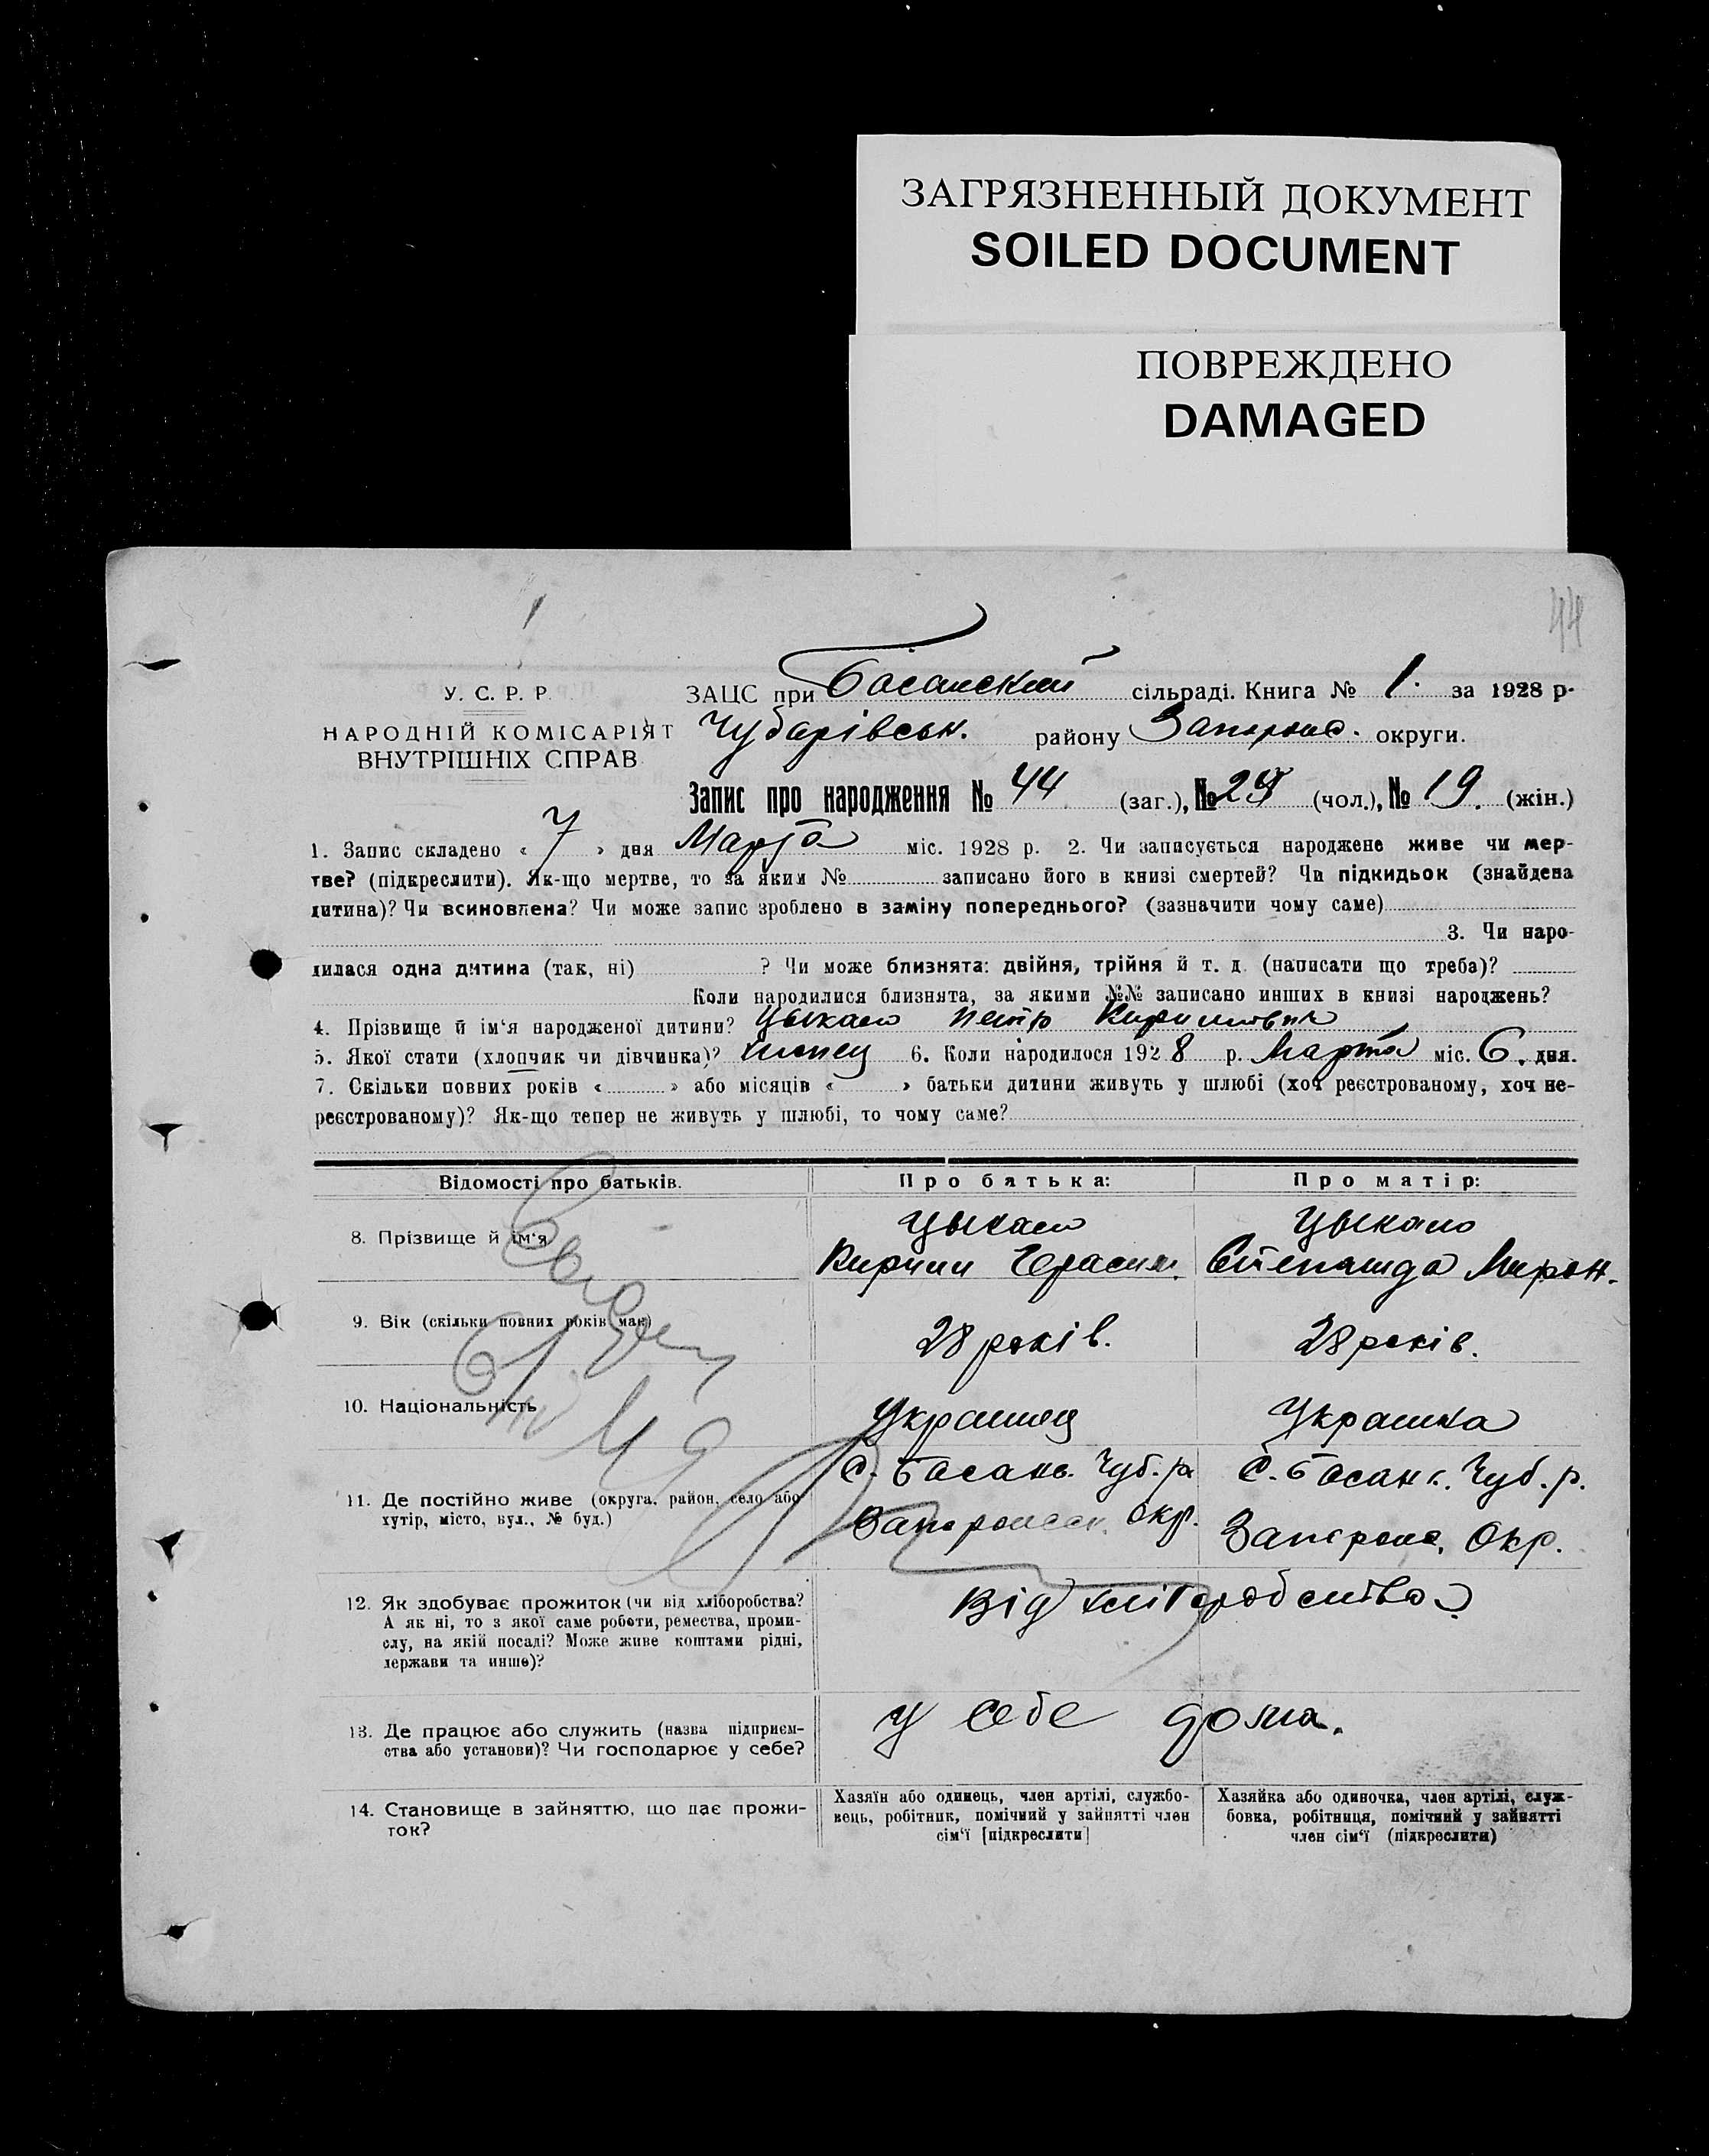 ЗАГРЯЗНЕННЫЙ ДОКУМЕНТ
SOILED DOCUMENT
ПОВРЕЖДЕНО
DAMAGED
44
У. С. Р. Р.
НАРОДНІЙ КОМІСАРІЯТ
ВНУТРІШНІХ СПРАВ
ЗАЦС при Басанский сільраді. Книга № 1. за 1928 р.
Чубарівськ. району Запорож. округи.
Запис про народження № 44 (заг.), № 25 (чол.), № 19. (жін.)
1. Запис складено « 7 » дня Марта міс. 1928 р. 2. Чи записується народжене живе чи мер-
тве? (підкреслити). Як-що мертве, то за яким № записано його в книзі смертей? Чи підкидьок (знайдена
дитина)? Чи всиновлена? Чи може запис зроблено в заміну попереднього? (зазначити чому саме)
3. Чи наро-
дилася одна дитина (так, ні) ? Чи може близнята: двійня, трійня й т. д. (написати що треба)?
Коли народилися близнята, за якими №№ записано инших в книзі народжень?
4. Прізвище й ім'я народженої дитини? Цыкало Петро Кирилович
5. Якої стати (хлопчяк чи дівчинка)? хлопец 6. Коли народилося 1928 р. Марта міс. 6. дня.
7. Скільки повних років « » або місяців « » батьки дитини живуть у шлюбі (хоч реєстрованому, хоч не-
реєстрованому)? Як-що тепер не живуть у шлюбі, то чому саме?
Відомості про батьків. Про батька: Про матір:
8. Прізвище й ім'я Цыкало Цыкало
Кирилл Герасим. Степанида Мирон.
9. Вік (скільки повних років має) 28 років. 28 років.
10. Національність Украинец Украинка
11. Де постійно живе (округа, район, село або
хутір, місто, вул., № буд.)
с. Басань. Чуб. р. с. Басань. Чуб. р.
Запорожск. окр. Запорож. Окр.
12. Як здобуває прожиток (чи від хліборобства?
А як ні, то з якої саме роботи, ремества, проми-
слу, на якій посаді? Може живе коштами рідні,
держави та инше)?
Від хліборобства
13. Де працює або служить (назва підприєм-
ства або установи)? Чи господарює у себе?
у себе дома.
14. Становище в зайняттю, що дає прожи-
ток?
Хазяїн або одинець, член артілі, службо-
вець, робітник, помічний у зайнятті член
сім'ї [підкреслити]
Хазяйка або одиночка, член артілі, служ-
бовка, робітниця, помічний у зайнятті
член сім'ї (підкреслити)